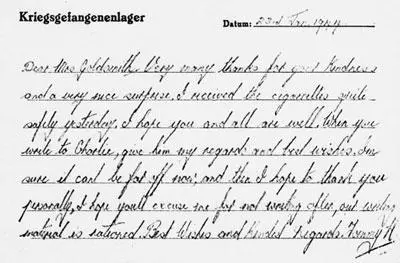 Kriegsgefangenenlager
Datum: 23rd Jan. 1944
Dear Mrs Goldsmith. Very many thanks for your kindness
and a very nice surprise, I received the cigarettes quite
safely yesterday, I hope you and all are well. When you
write to Charlie, give him my regards and best wishes, Im
sure it cant be far off now, and then I hope to thank you
personally, I hope you'll excuse me for not writing often, our writing
material is rationed. Best Wishes and Kindest regards.